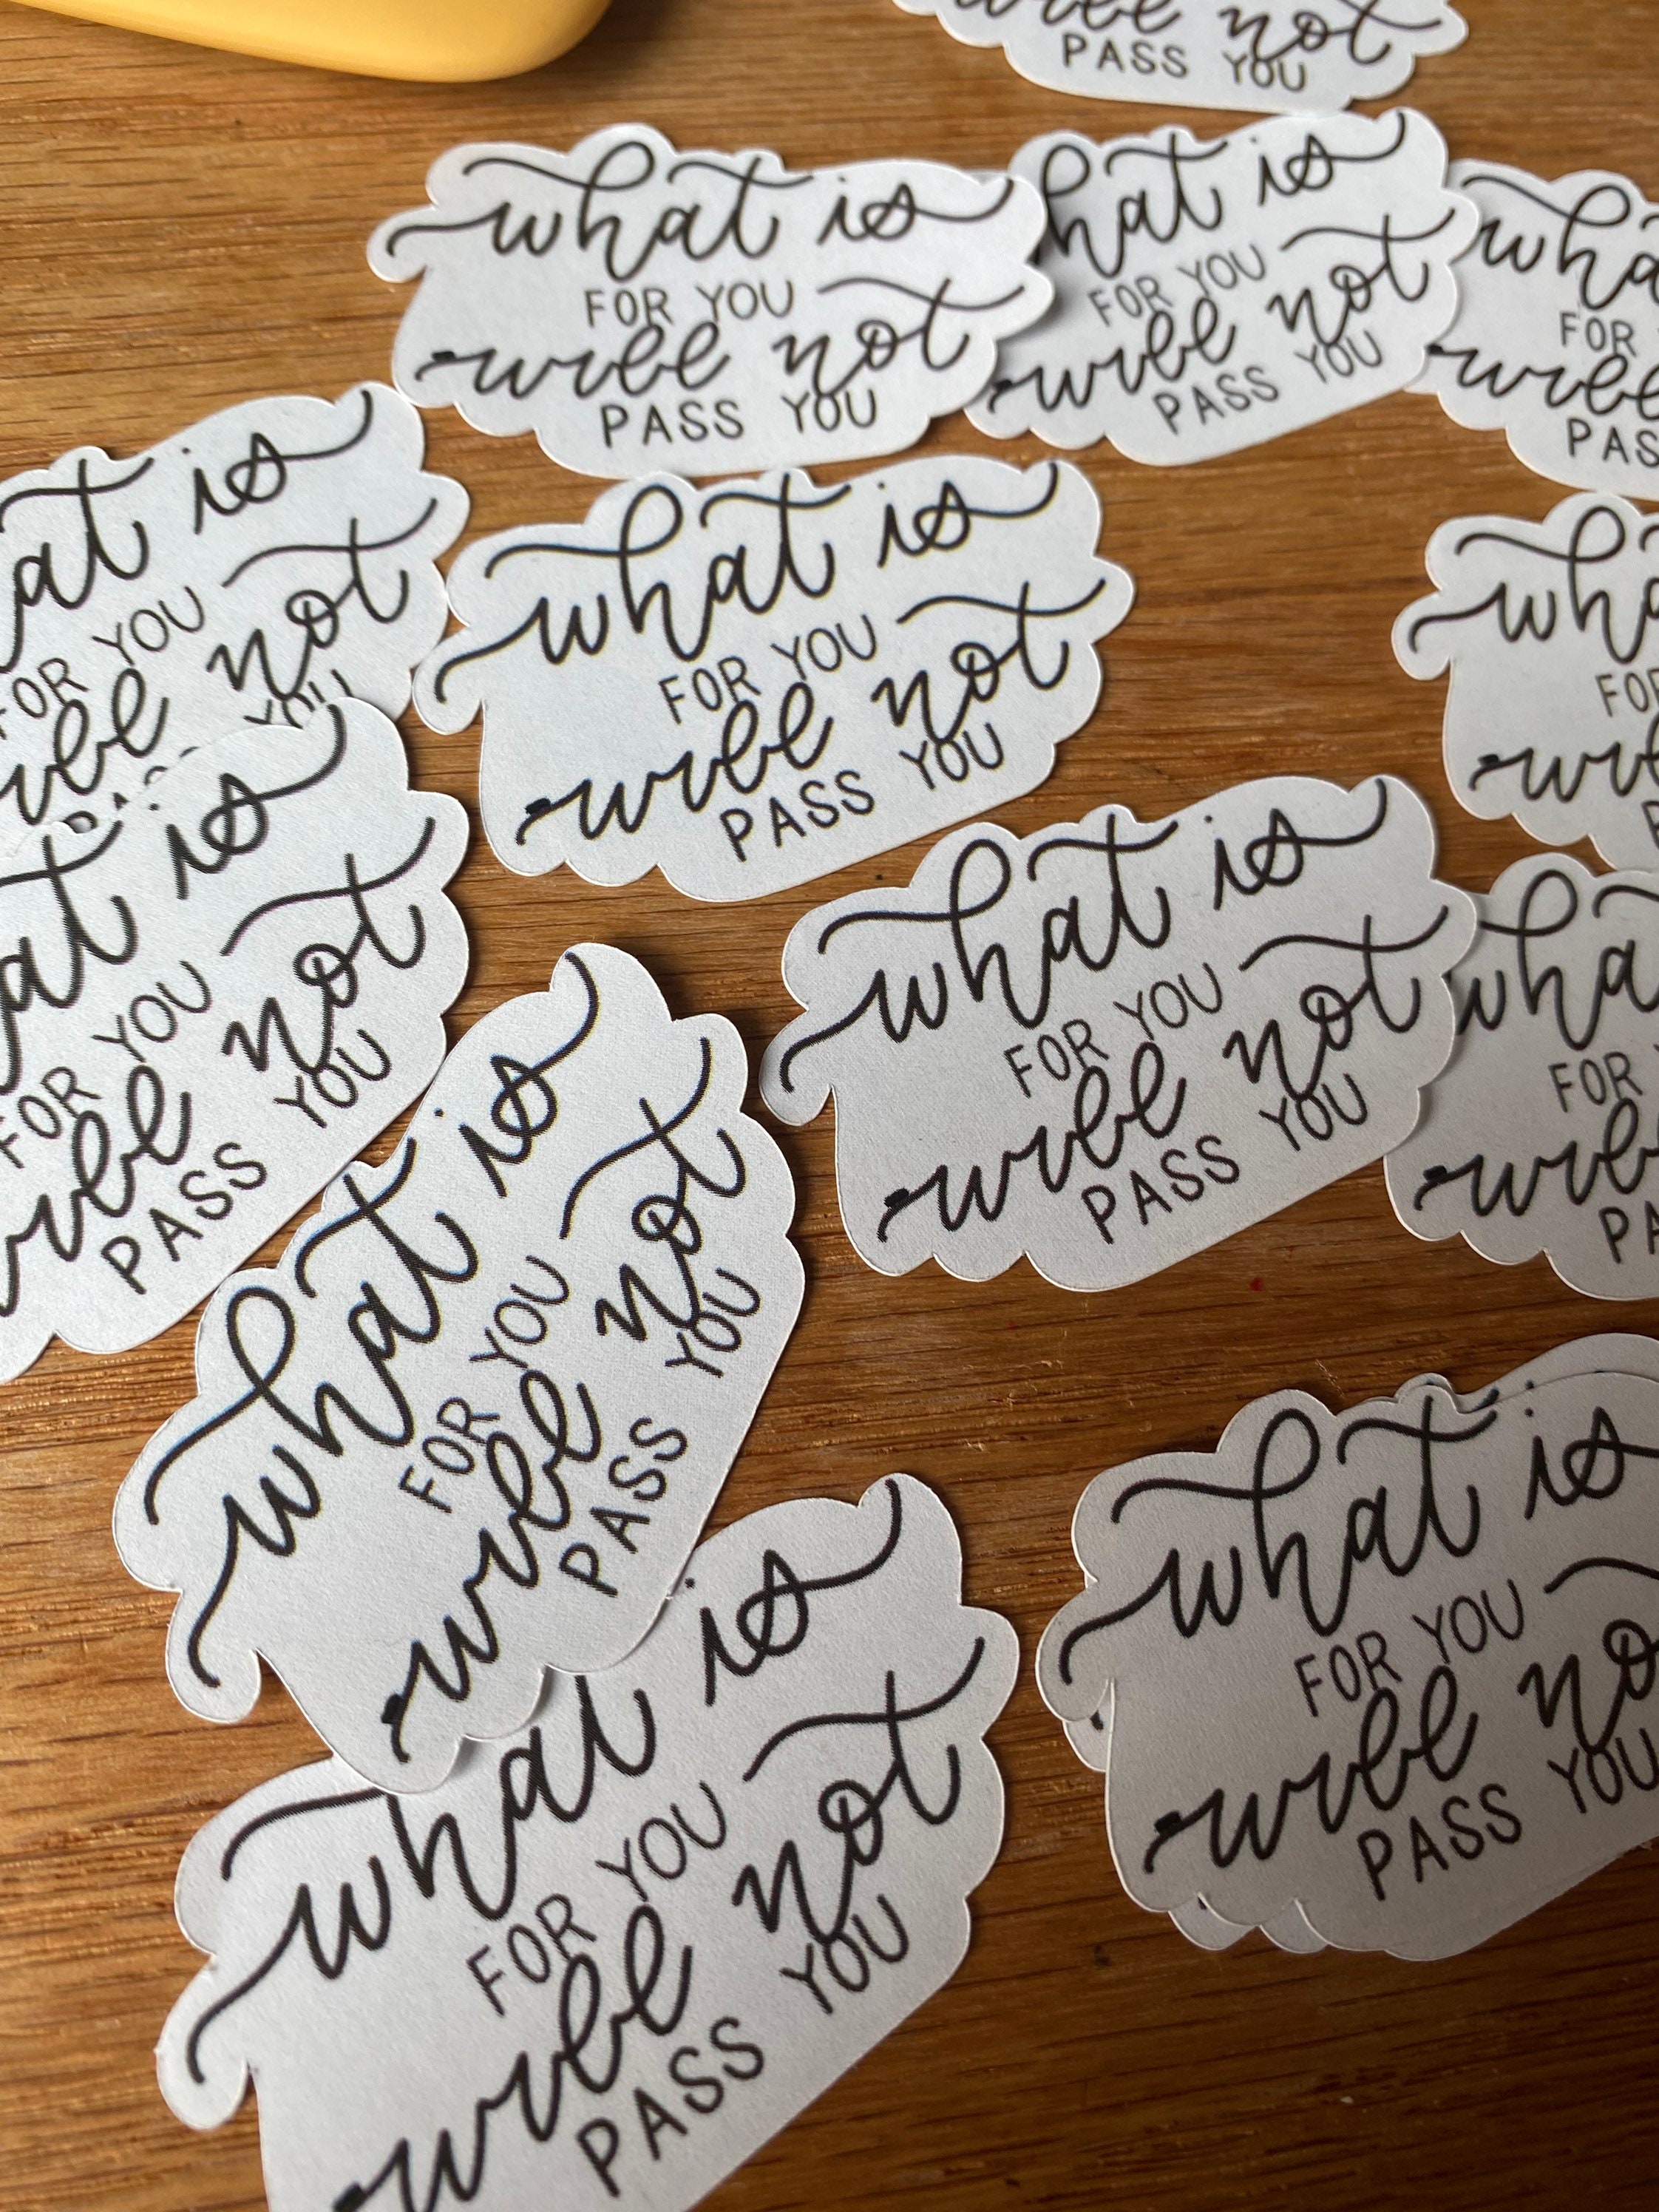 will not
PASS YOU
what is
FOR YOU
will not
PASS YOU
hat is
FOR YOU
will not
PASS YOU
wha
FOR
will
PAS
at is
FOR YOU
will not
YOU
what is
FOR YOU
will not
PASS YOU
wha
FOR
will
at is
FOR YOU
will not
PASS YOU
what is
FOR YOU
will not
PASS YOU
wha
FOR
will
PA
what is
FOR YOU
will not
PASS YOU
what is
FOR YOU
will no
PASS YOU
what is
FOR YOU
will not
PASS YOU